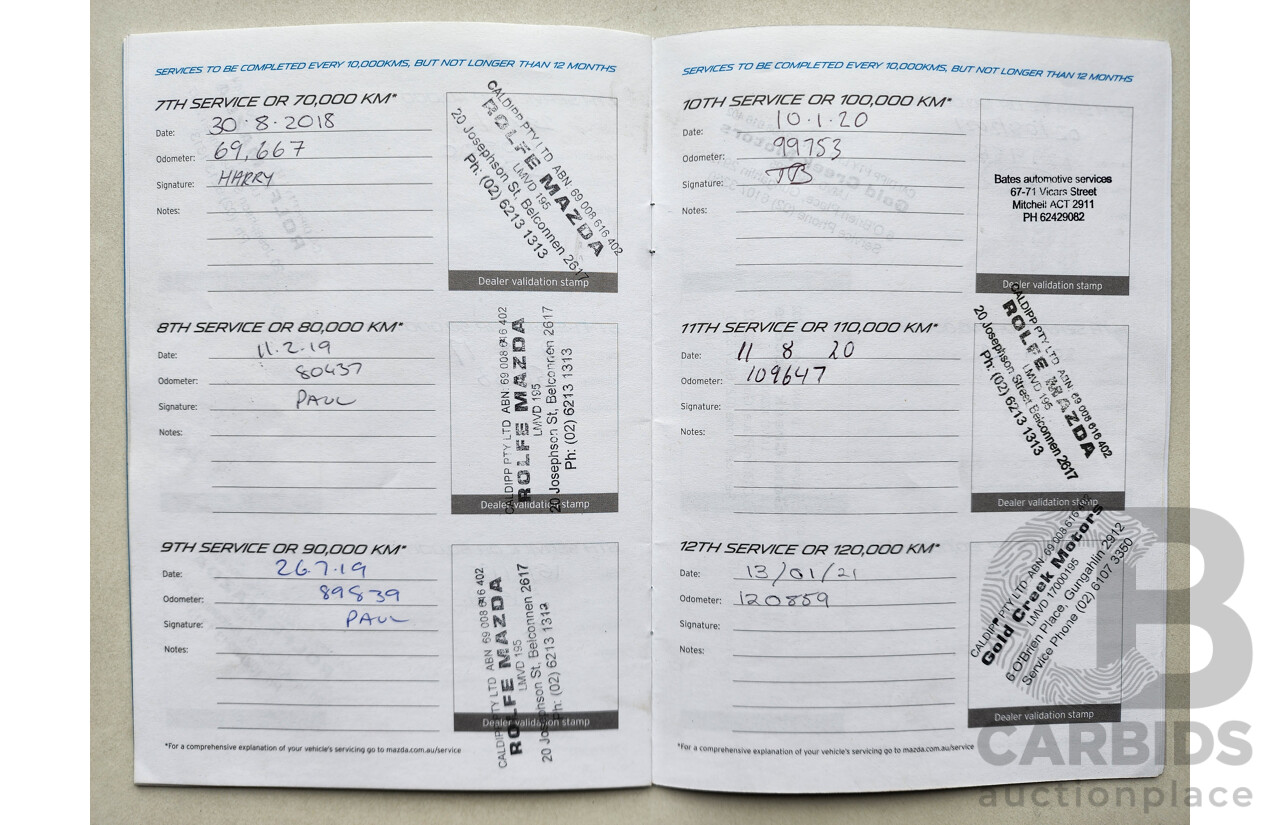 SERVICES TO BE COMPLETED EVERY 10,000KMS, BUT NOT LONGER THAN 12 MONTHS
7TH SERVICE OR 70,000 KM*
Date: 30·8·2018
Odometer: 69,667
Signature: HARRY
Notes:
CALDIPP PTY LTD ABN: 69 008 616 402
ROLFE MAZDA
LMVD 195
20 Josephson St, Belconnen 2617
Ph: (02) 6213 1313
Dealer validation stamp
8TH SERVICE OR 80,000 KM*
Date: 11.2.19
Odometer: 80437
Signature: PAUL
Notes:
CALDIPP PTY LTD ABN: 69 008 616 402
ROLFE MAZDA
LMVD 195
20 Josephson St, Belconnen 2617
Ph: (02) 6213 1313
Dealer validation stamp
9TH SERVICE OR 90,000 KM*
Date: 26.7.19
Odometer: 89839
Signature: PAUL
Notes:
CALDIPP PTY LTD ABN: 69 008 616 402
ROLFE MAZDA
LMVD 195
20 Josephson St, Belconnen 2617
Ph: (02) 6213 1313
Dealer validation stamp
*For a comprehensive explanation of your vehicle's servicing go to mazda.com.au/service
SERVICES TO BE COMPLETED EVERY 10,000KMS, BUT NOT LONGER THAN 12 MONTHS
10TH SERVICE OR 100,000 KM*
Date: 10·1·20
Odometer: 99753
Signature:
Notes:
Bates automotive services
67-71 Vicars Street
Mitchell ACT 2911
PH 62429082
Dealer validation stamp
11TH SERVICE OR 110,000 KM*
Date: 11 8 20
Odometer: 109647
Signature:
Notes:
CALDIPP PTY LTD ABN: 69 008 616 402
ROLFE MAZDA
LMVD 195
20 Josephson Street Belconnen 2617
Ph: (02) 6213 1313
Dealer validation stamp
12TH SERVICE OR 120,000 KM*
Date: 13/01/21
Odometer: 120859
Signature:
Notes:
CALDIPP PTY LTD ABN: 69 008 616 402
Gold Creek Motors
LMVD 17000195
6 O'Brien Place, Gungahlin 2912
Service Phone (02) 6107 3350
Dealer validation stamp
*For a comprehensive explanation of your vehicle's servicing go to mazda.com.au/service
CARBIDS
auctionplace